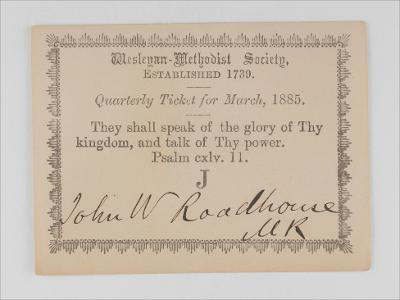 Wesleyan-Methodist Society,
ESTABLISHED 1739.
Quarterly Ticket for March, 1885.
They shall speak of the glory of Thy
kingdom, and talk of Thy power.
Psalm cxlv. 11.
J
John W Roadhouse
MR